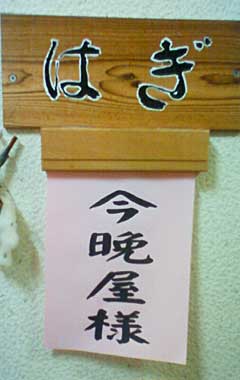 はぎ
今晩屋様